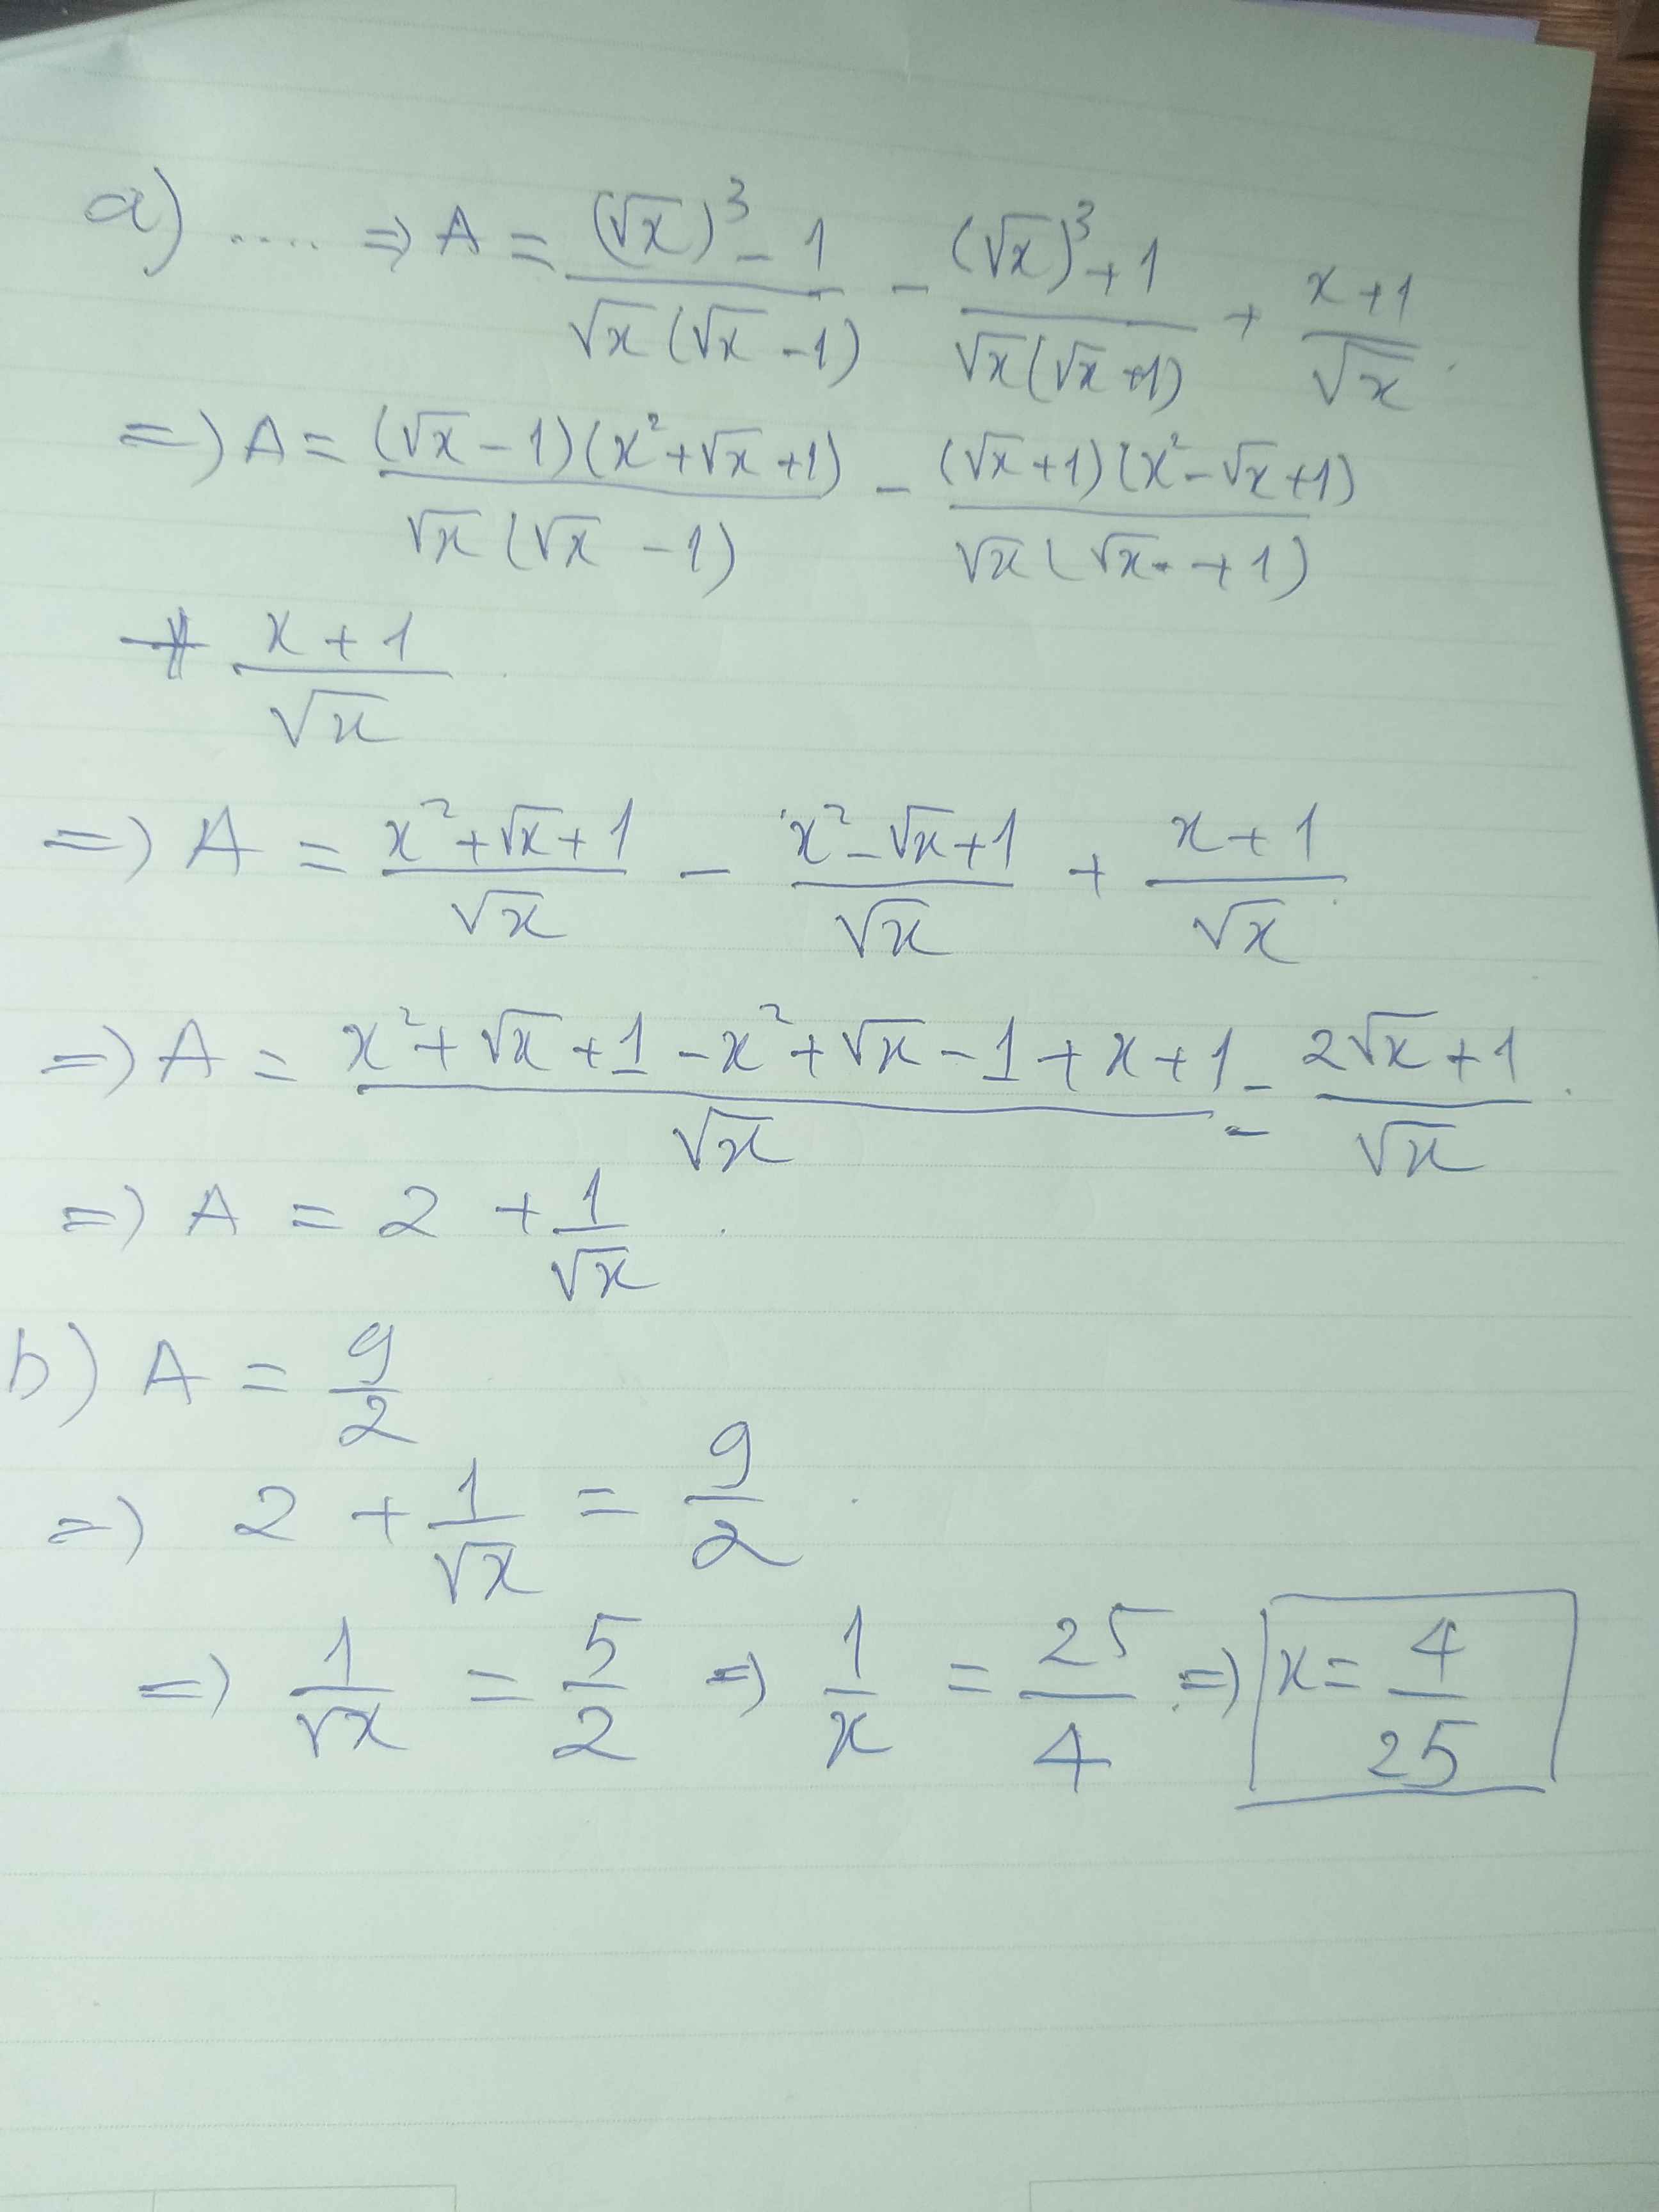 a) .... => A = ((√x)³ - 1)/(√x(√x - 1)) - ((√x)³ + 1)/(√x(√x + 1)) + (x + 1)/√x.
=> A = ((√x - 1)(x² + √x + 1))/(√x(√x - 1)) - ((√x + 1)(x² - √x + 1))/(√x(√x + 1))
+ (x + 1)/√x
=> A = (x² + √x + 1)/√x - (x² - √x + 1)/√x + (x + 1)/√x
=> A = (x² + √x + 1 - x² + √x - 1 + x + 1)/√x = (2√x + 1)/√x
=> A = 2 + 1/√x
b) A = 9/2
=> 2 + 1/√x = 9/2
=> 1/√x = 5/2 => 1/x = 25/4 => x = 4/25